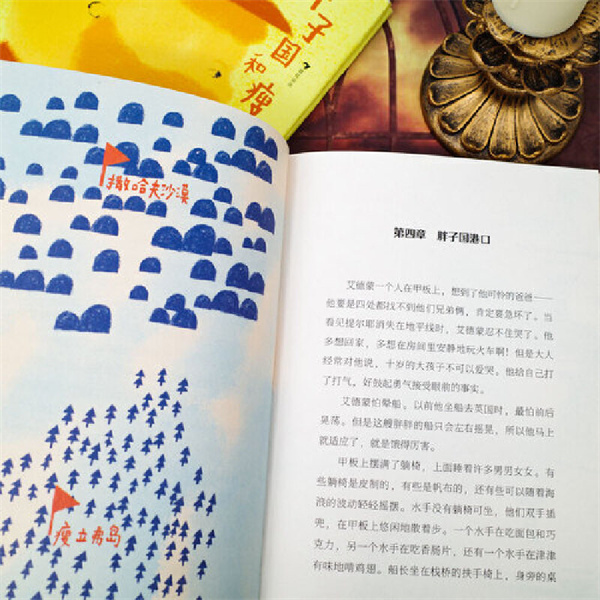 胖子国和瘦
撒哈夫沙漠
瘦立弗岛
第四章 胖子国港口
艾德蒙一个人在甲板上，想到了他可怜的爸爸——
他要是四处都找不到他们兄弟俩，肯定要急坏了。当
看见提尔耶消失在地平线时，艾德蒙忍不住哭了。他
多想回家，多想在房间里安静地玩火车啊！但是大人
经常对他说，十岁的大孩子不可以爱哭。他给自己打
了打气，好鼓起勇气接受眼前的事实。
艾德蒙怕晕船。以前他坐船去英国时，最怕前后
晃荡。但是这艘胖胖的船只会左右摇晃，所以他马上
就适应了，就是饿得厉害。
甲板上摆满了躺椅，上面睡着许多男男女女。有
些躺椅是皮制的，有些是帆布的，还有些可以随着海
浪的波动轻轻摇摆。水手没有躺椅可坐，他们双手插
兜，在甲板上悠闲地散着步。一个水手在吃面包和巧
克力，另一个水手在吃香肠片，还有一个水手在津津
有味地啃鸡翅。船长坐在栈桥的扶手椅上，身旁的桌